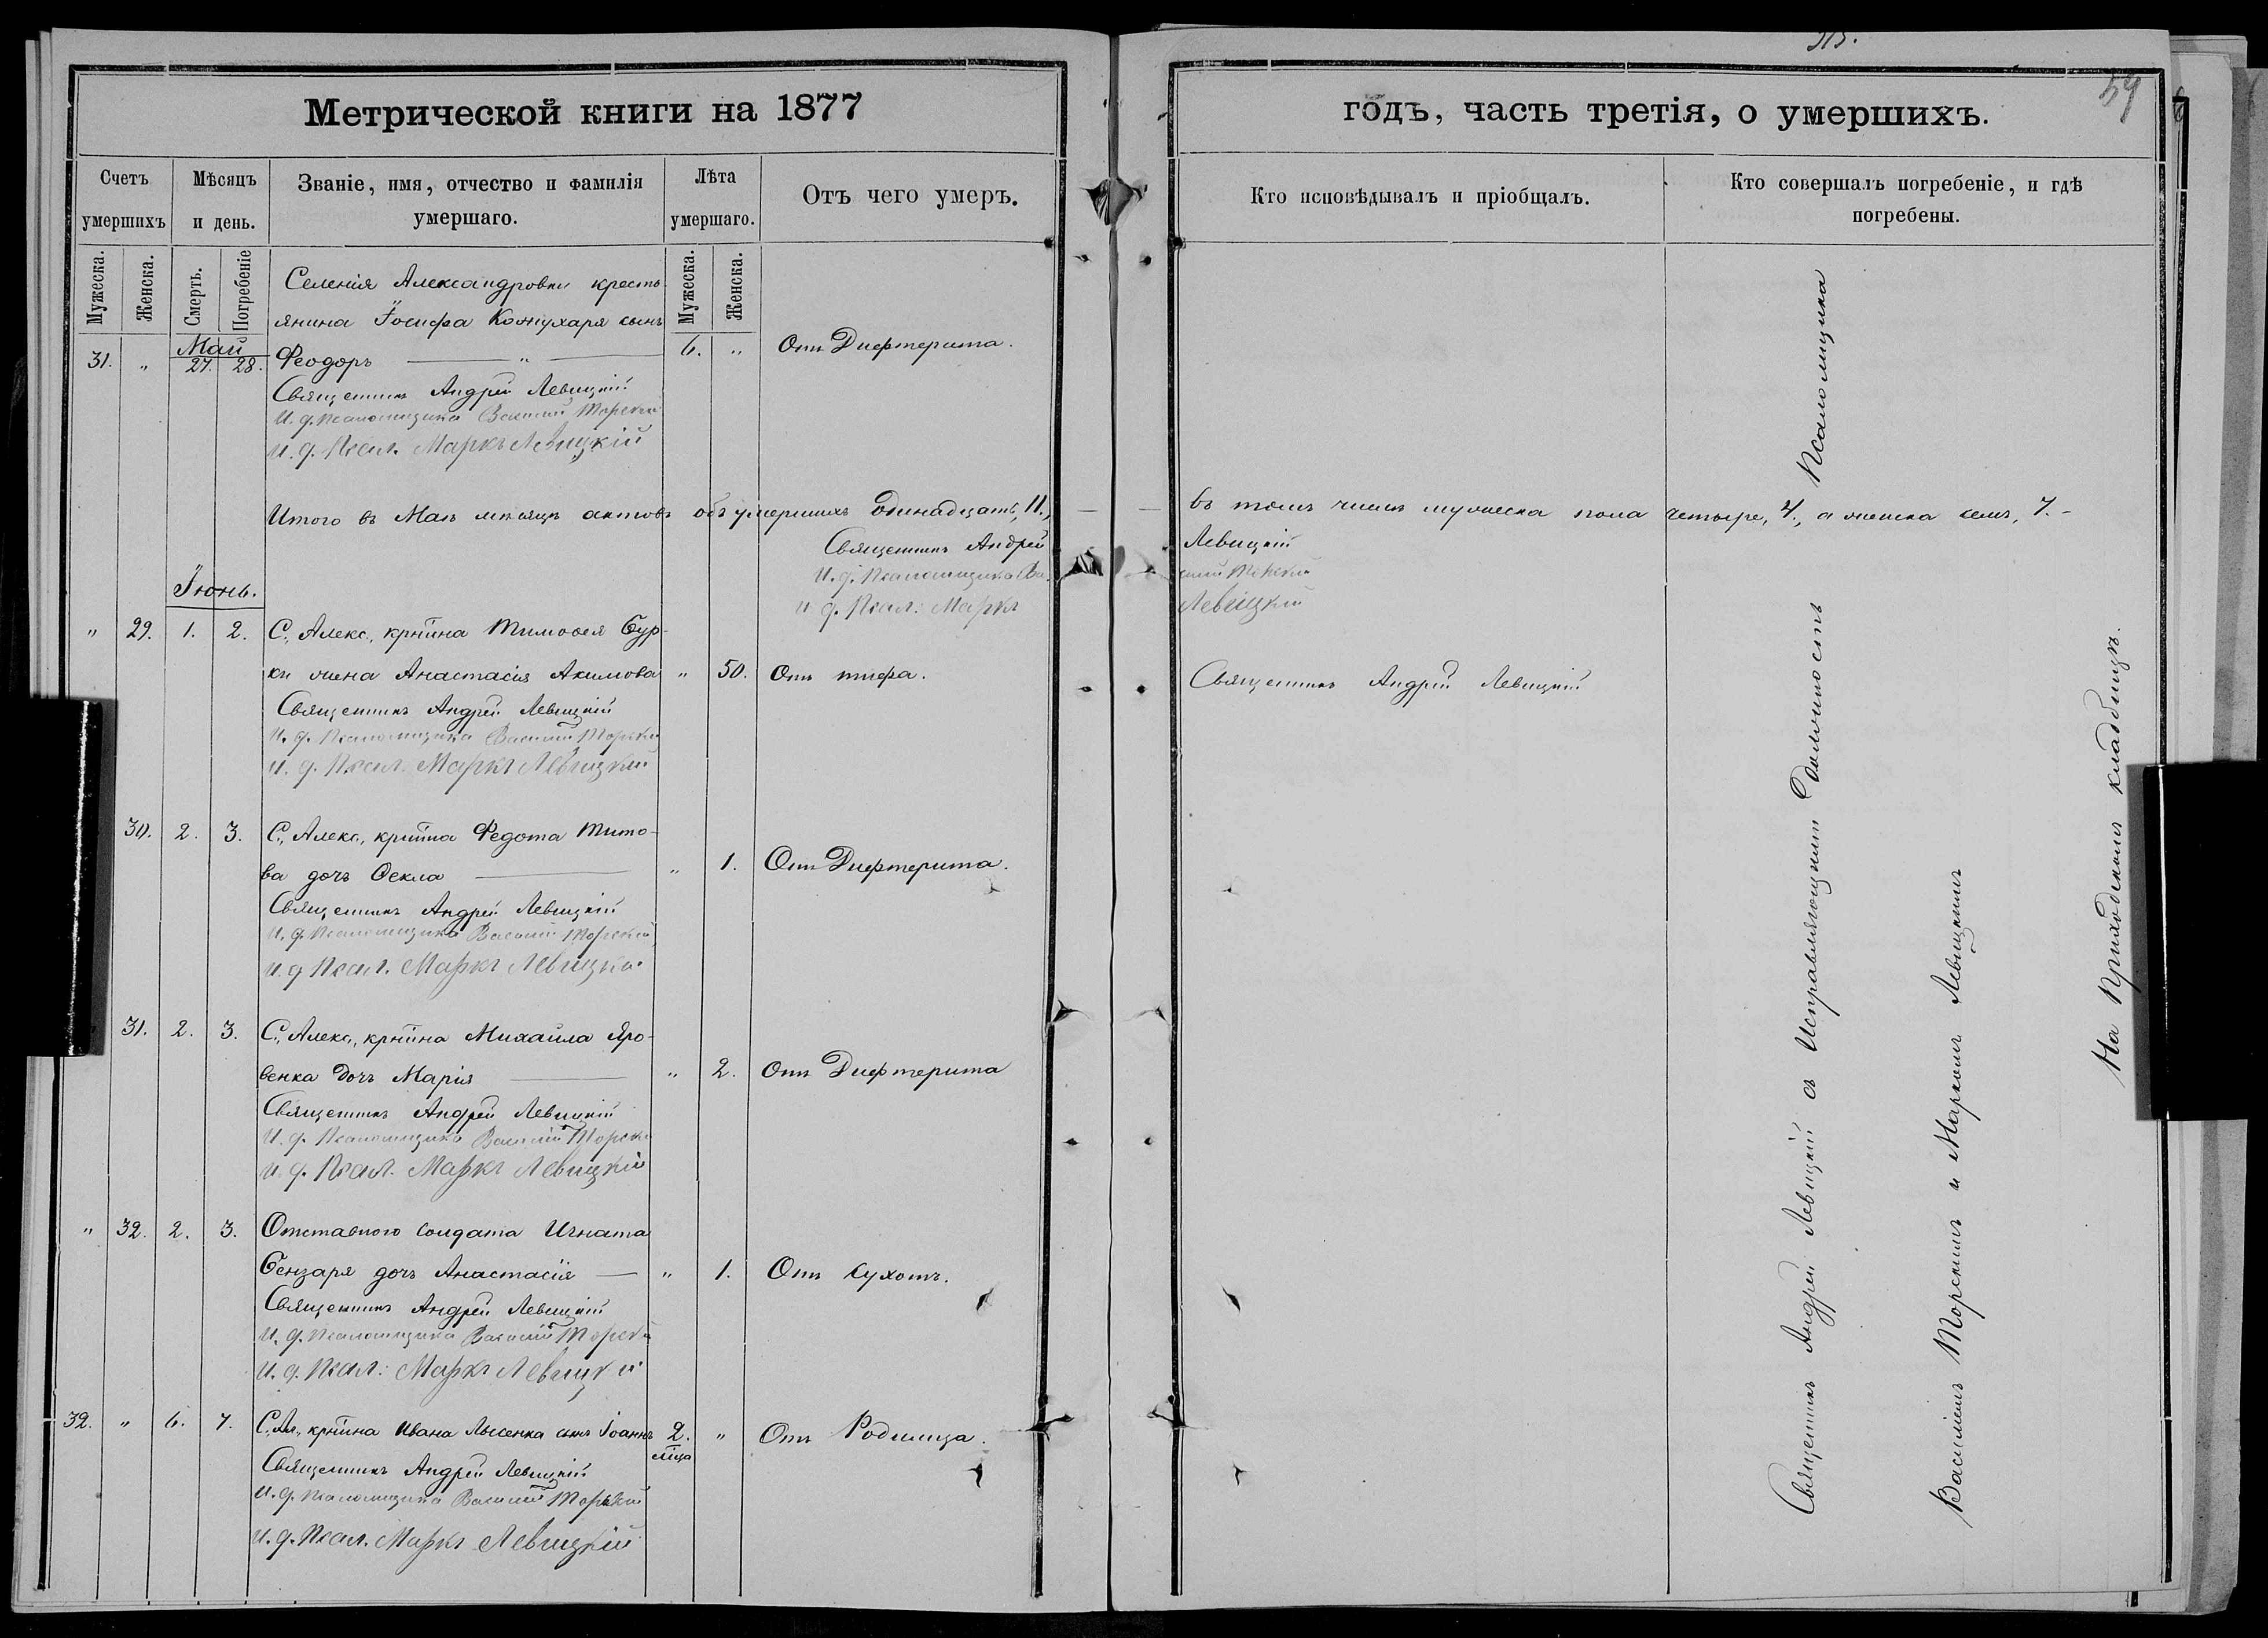 Метрической книги на 1877
Счетъ умершихъ
Мѣсяцъ и день.
Званіе, имя, отчество и фамилія умершаго.
Лѣта умершаго.
Отъ чего умеръ.
Мужеска.
Женска.
Смерть.
Погребеніе
Мужеска.
Женска.
Селенія Александровки кресть-
янина Іосифа Кожухаря сынъ
Май
31. " 27. 28. Ѳеодоръ — " — 6. " Отъ Дифтерита.
Священникъ Андрей Левицкій
И. д. Псаломщика Василій Торскій
И. д. Псал. Маркъ Левицкій
Итого въ Маѣ мѣсяцѣ актовъ объ умершихъ Одинадцать, 11.,
Священникъ Андрей
И. д. Псаломщика Ва-
и д. Псал: Маркъ
Іюнь.
" 29. 1. 2. С. Алекс., кр҃тіина Тимоѳея Бур-
ки жена Анастасія Акимова " 50. Отъ тифа.
Священникъ Андрей Левицкій
И. д. Псаломщика Василій Торскій
И. д. Псал. Маркъ Левицкій
30. 2. 3. С. Алекс., кр҃тіина Федота Тито-
ва дочь Ѳекла — " 1. Отъ Дифтерита.
Священникъ Андрей Левицкій
И. д. Псаломщика Василій Торскій
И. д Псал. Маркъ Левицкій
31. 2. 3. С. Алекс., кр҃тіина Михаила Яро-
венка дочь Марія — " 2. Отъ Дифтерита
Священникъ Андрей Левицкій
И. д. Псаломщика Василій Торскій
И. д. Псал. Маркъ Левицкій
" 32. 2. 3. Отставного солдата Игната
Бензаря дочь Анастасія — " 1. Отъ Сухотъ.
Священникъ Андрей Левицкій
И. д. Псаломщика Василій Торскій
И. д. Псал: Маркъ Левицкій
32. " 6. 7. С. Ал., кр҃тіина Ивана Лысенка сынъ Іоаннъ 2. м҃ца " Отъ Родимца.
Священникъ Андрей Левицкій
И. д. Псаломщика Василій Торскій
И. д. Псал. Маркъ Левицкій
годъ, часть третія, о умершихъ.
59
Кто исповѣдывалъ и пріобщалъ.
Кто совершалъ погребеніе, и гдѣ погребены.
въ томъ числѣ мужеска пола четыре, 4., а женска семь, 7.-
Левицкій
силій Торскій
Левицкій
Священникъ Андрей Левицкій
Священникъ Андрей Левицкій съ Исправляющими Должность Псаломщика
Василіемъ Торскимъ и Маркомъ Левицкимъ
На Приходскомъ кладбищѣ.